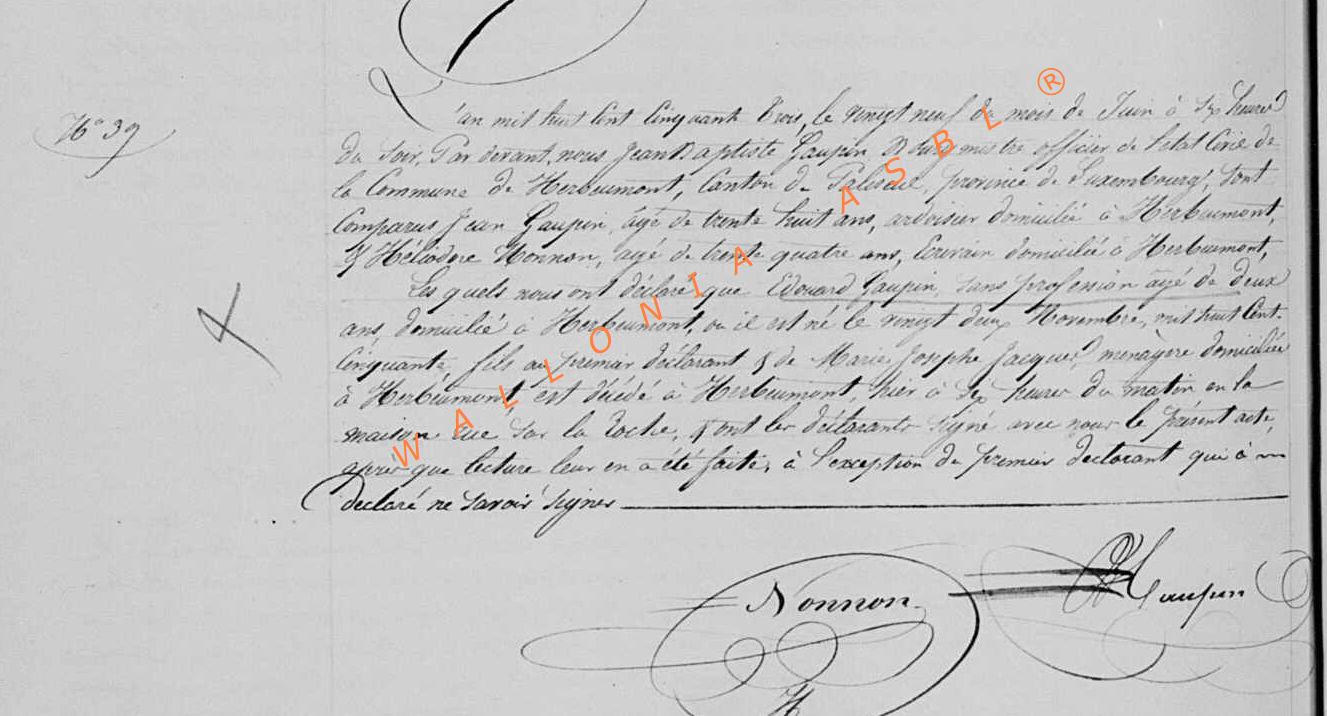 N° 39
L'an mil huit Cent Cinquante trois, le vingt neuf du mois de Juin à Six heures
du Soir, Par devant nous Jean Baptiste Gaupin, Bourgmestre officier de l'état Civil de
la Commune de Herbeumont, Canton de Paliseul, province de Luxembourg, Sont
Comparus Jean Gaupin, âgé de trente huit ans, ardoisier domicilié à Herbeumont,
& Héliodore Nonnon, agé de trente quatre ans, Ecrivain domicilié à Herbeumont,
Les quels nous ont déclaré que Edouard Gaupin, sans profession âgé de deux
ans, domicilié à Herbeumont, ou il est né le vingt deux Novembre, mil huit Cent
Cinquante, fils au premier déclarant & de Marie Josephe Jacques, menagere domiciliée
à Herbeumont, est décédé à Herbeumont, hier à Six heures du matin en la
maison Rue Sur la Roche, & ont les déclarants Signé avec nous le présent acte,
apres que lecture leur en a été faite, à l'exception du premier declarant qui à
declaré ne Savoir Signer
Nonnon
Gaupin
WALLONIA ASBL ®